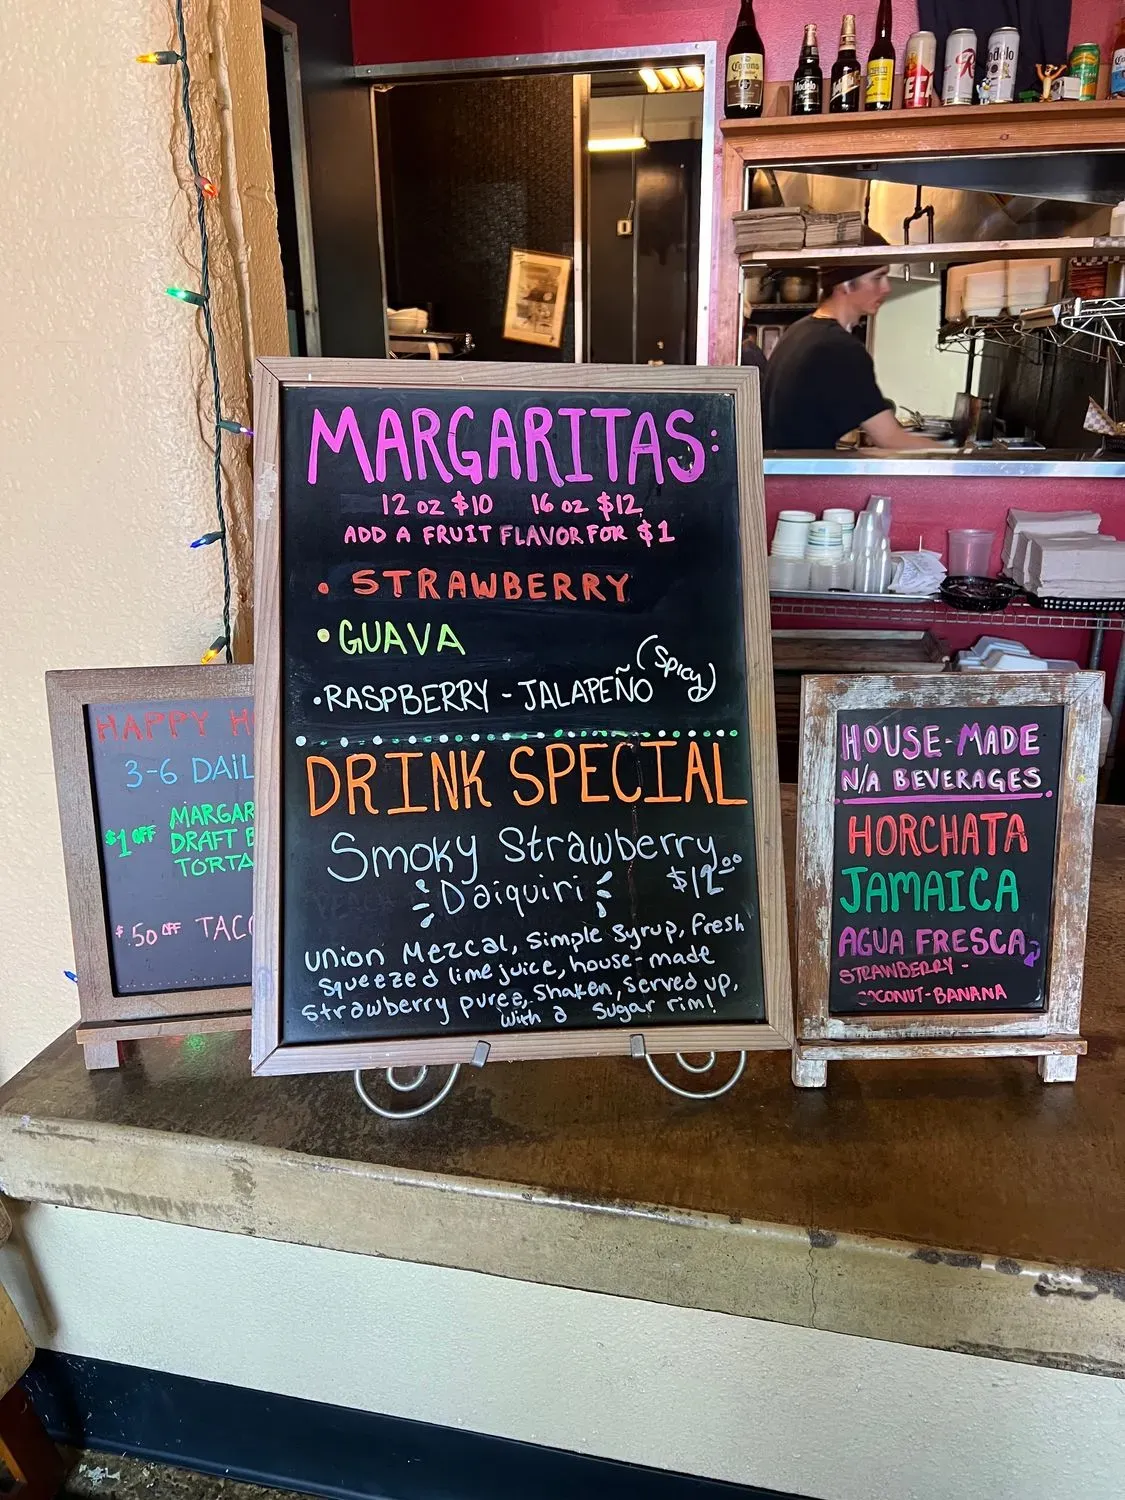 MARGARITAS:
12 oz $10 16 oz $12
ADD A FRUIT FLAVOR FOR $1
• STRAWBERRY
• GUAVA
• RASPBERRY - JALAPEÑO (Spicy)
DRINK SPECIAL
Smoky Strawberry
Daiquiri $12.00
union Mezcal, simple syrup, fresh
squeezed lime juice, house-made
strawberry puree, shaken, served up,
with a sugar rim!
HAPPY H
3-6 DAIL
$1 OFF MARGAR
DRAFT B
TORTA
$.50 OFF TACO
HOUSE-MADE
N/A BEVERAGES
HORCHATA
JAMAICA
AGUA FRESCA
STRAWBERRY -
COCONUT-BANANA
Corona
Modelo
Modelo